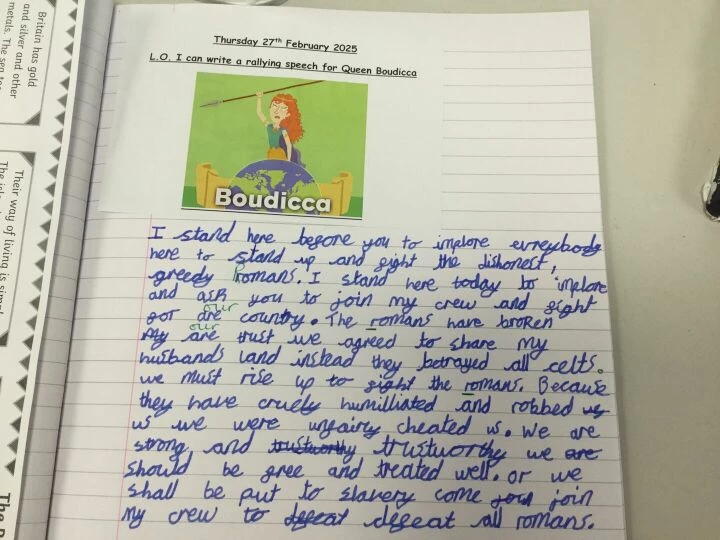 Britain has gold
and silver and other
metals. The sea
Their way of living is
The
Thursday 27th February 2025
L.O. I can write a rallying speech for Queen Boudicca
Boudicca
I stand here before you to implore evreybody
here to stand up and fight the dishonest,
greedy Romans. I stand here today to implore
and ask you to join my crew and fight
our
for are country. The romans have broken
our
my are trust we agreed to share my
husbands land instead they betrayed all celts.
we must rise up to fight the romans. Because
they have cruely humilliated and robbed us
us we were unfairly cheated us. We are
strong and trustworthy trustworthy we are
should be free and treated well. or we
shall be put to slavery come join
my crew to defeat defeat all romans.